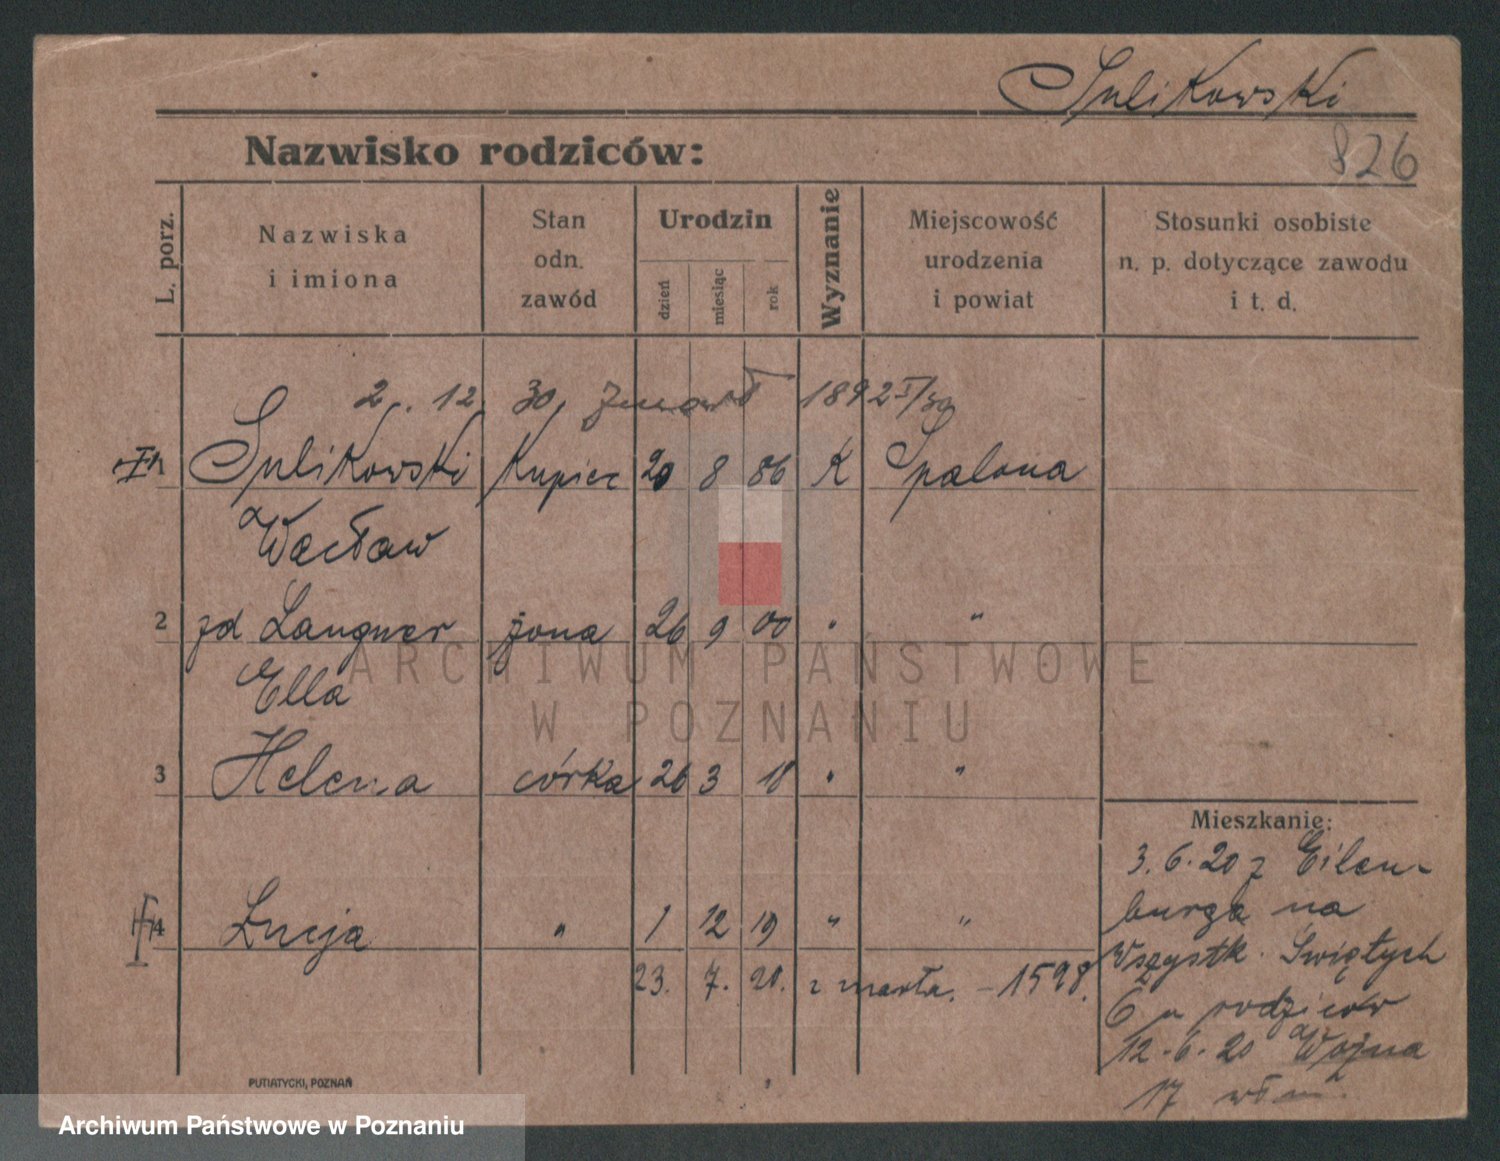 Sulikowski
Nazwisko rodziców:
826
L. porz.
Nazwiska
i imiona
Stan
odn.
zawód
Urodzin
dzień
miesiąc
rok
Wyznanie
Miejscowość
urodzenia
i powiat
Stosunki osobiste
n. p. dotyczące zawodu
i t. d.
2. 12. 30. zmarł 1892 I/30
1 Sulikowski Kupiec 20 8 86 K Spalona
Wacław
2 zd Langner żona 26 9 00 " "
Ella
3 Helena córka 26 3 18 " "
4 Łucja " 1 12 19 " "
23. 7. 20. zmarła. - 1598.
Mieszkanie:
3.6.20 z Eilen-
burga na
Wszystk. Świętych
6 u rodziców
12.6.20 Woźna
17
PUTIATYCKI, POZNAŃ
ARCHIWUM PAŃSTWOWE
W POZNANIU
Archiwum Państwowe w Poznaniu